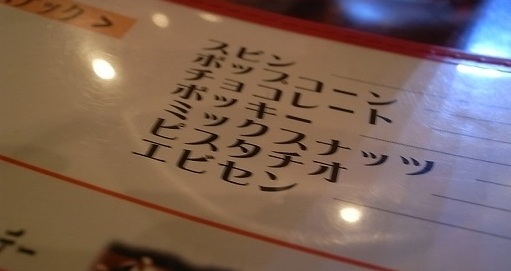 ナック＞
スピン
ポップコーン
チョコレート
ポッキー
ミックスナッツ
ピスタチオ
エビセン
デー